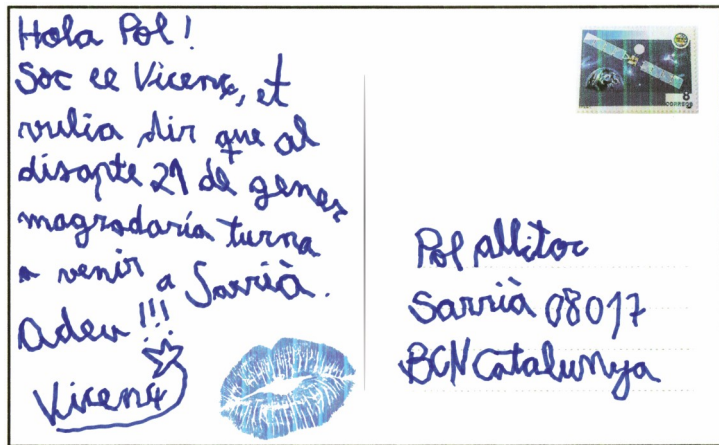 Hola Pol!
Soc ee Vicenç, et
vulia dir que al
disapte 21 de gener
magradaría turna
a venir a Sarrià.
Adeu!!!
Vicenç
8
CORREOS
Pol
Sarrià 08017
BCN Catalunya